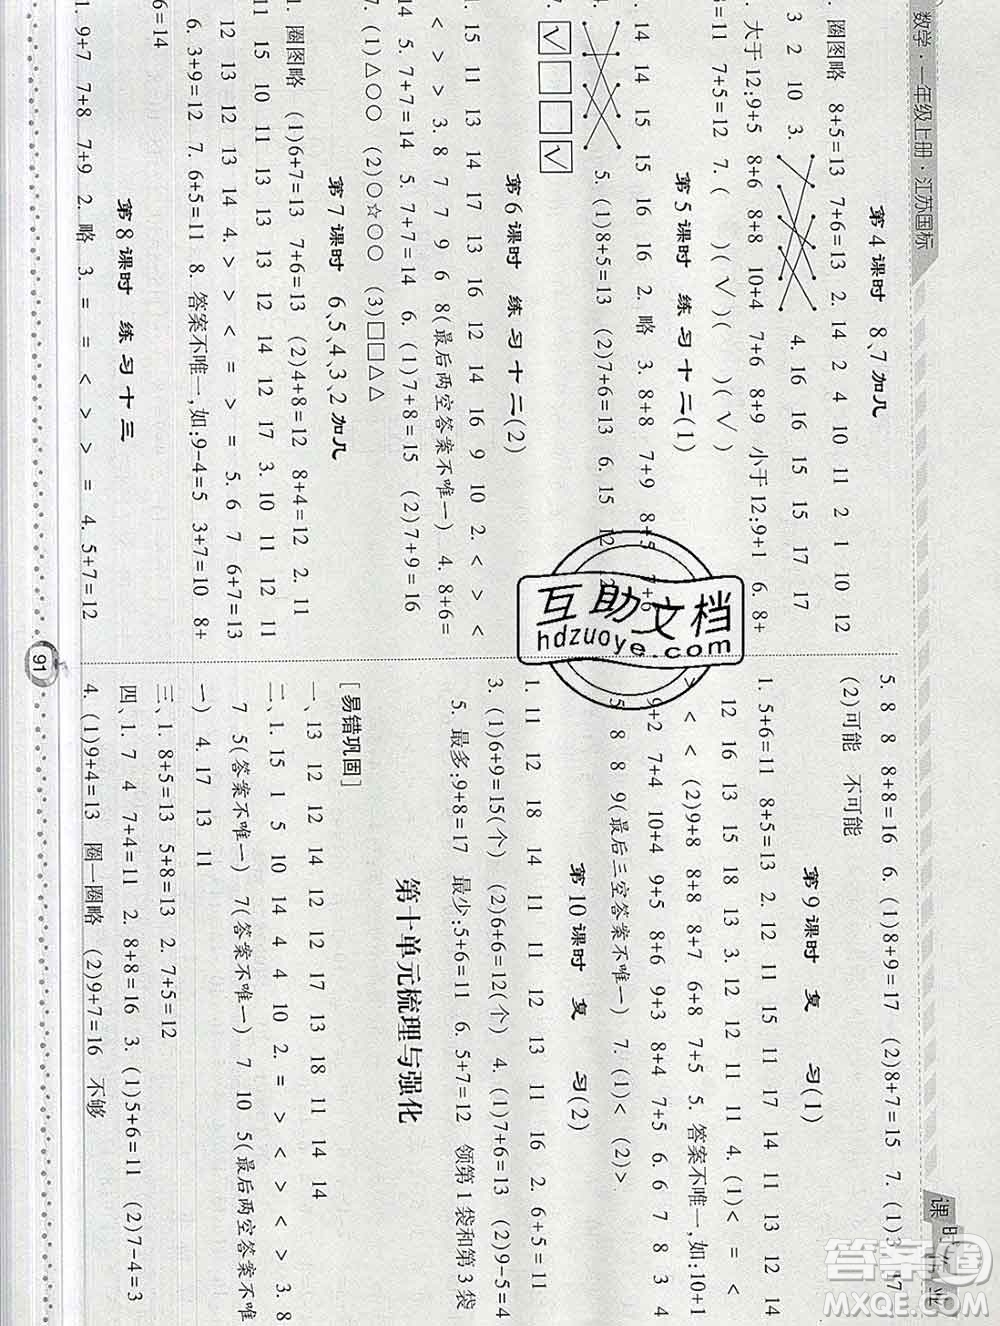 数学·一年级上册·江苏国标
课时作业
第4课时 8、7加几
圈图略 8+5=13 7+6=13 2. 14 2 4 10 11 2 1 10
3 2 10 3. 4. 16 16 15 15 17 17
大于12:9+5 8+6 8+8 10+4 7+6 8+9 小于12:9+1 6. 8+
=11 7+5=12 7. ( )(√)( )(√)
第5课时 练习十二(1)
14 14 15 15 16 16 2. 略 3. 8+8 7+9 8+5 7+6
4. 5. (1)8+5=13 (2)7+6=13 6. 15 12
√ √
第6课时 练习十二(2)
15 15 13 14 17 13 16 12 14 16 9 10 2. < > <
< > > 3. 8 7 9 6 8(最后两空答案不唯一) 4. 8+6=
14 7+7=14 5. 7+7=14 6. (1)7+8=15 (2)7+9=16
7. (1)△○○ (2)○☆○○ (3)□□△△
第7课时 6、5、4、3、2加几
1. 圈图略 (1)6+7=13 7+6=13 (2)4+8=12 8+4=12 2. 11
11 15 10 11 13 13 13 12 14 12 17 3. 10 11 12 11
12 13 12 13 14 4. > > < = > = 5. 6 7 6+7=13
5+6=11 7. 3+9=12 6. 6+5=11 8. 答案不唯一,如:9-4=5 3+7=10 8+
6=14
第8课时 练习十三
1. 9+7 7+8 7+9 2. 略 3. = = < > > = 4. 5+7=12
5. 8 8 8+8=16 6. (1)8+9=17 (2)8+7=15 7. (1)3 17
(2)可能 不可能
第9课时 复 习(1)
1. 5+6=11 8+5=13 2. 12 15 11 15 14 17 11 16 13
12 16 13 17 12 3. 12 11 14 17 11 14 4. (1)< = <
> < < (2)9+8 8+8 8+7 8+6 7+5 5. 答案不唯一,如:10+1
9+2 7+4 10+4 9+5 8+6 10+5 8+7 7+5 6. 6 7 8 3 4
5 8 8 9(最后三空答案不唯一) 7. (1)< (2)>
第10课时 复 习(2)
1. 11 12 18 14 11 11 12 13 11 16 2. 6+5=11
3. (1)6+9=15(个) (2)6+6=12(个) 4. (1)7+6=13 (2)9-5=4
5. 最多:9+8=17 最少:5+6=11 6. 5+7=12 领第1袋和第3袋
第十单元梳理与强化
[易错巩固]
一、13 12 12 14 12 12 17 13 18 11 14 14
二、1. 15 1 5 10 14 4 4 10 2. = > < < < > 3. 8
7 5(答案不唯一) 7(答案不唯一) 7 10 5(最后两空答案不唯
一) 4. 17 13 11
三、1. 8+5=13 5+8=13 2. 7+5=12
四、1. 7 4 7+4=11 2. 8+8=16 3. (1)5+6=11 (2)7-4=3
4. (1)9+4=13 圈一圈略 (2)9+7=16 不够
91
互助文档
hdzuoye.com
答案圈
MXQE.COM